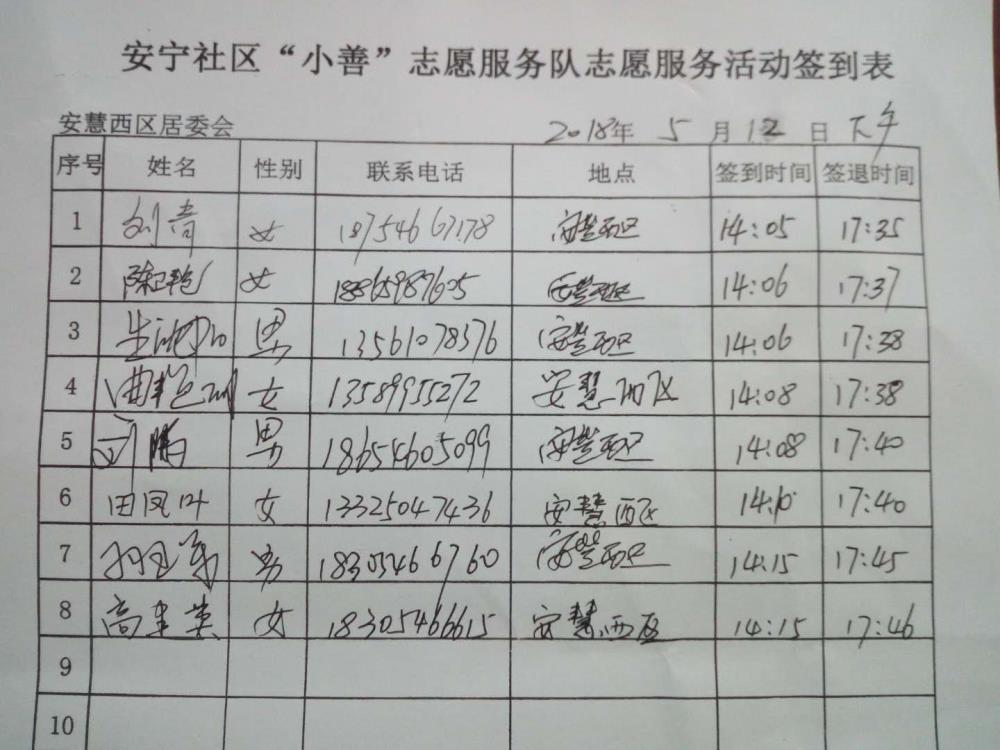 安宁社区“小善”志愿服务队志愿服务活动签到表
安慧西区居委会 2018年 5 月 12 日 下午
序号 姓名 性别 联系电话 地点 签到时间 签退时间
1 刘青 女 安慧西区 14:05 17:35
2 女 安慧西区 14:06 17:37
3 男 13561078376 安慧西区 14:06 17:38
4 女 13589955272 安慧西区 14:08 17:38
5 刘鹏 男 18654605099 安慧西区 14:08 17:40
6 田凤叶 女 13325047436 安慧西区 14:10 17:40
7 男 18305466760 安慧西区 14:15 17:45
8 高建英 女 18305466615 安慧西区 14:15 17:46
9
10